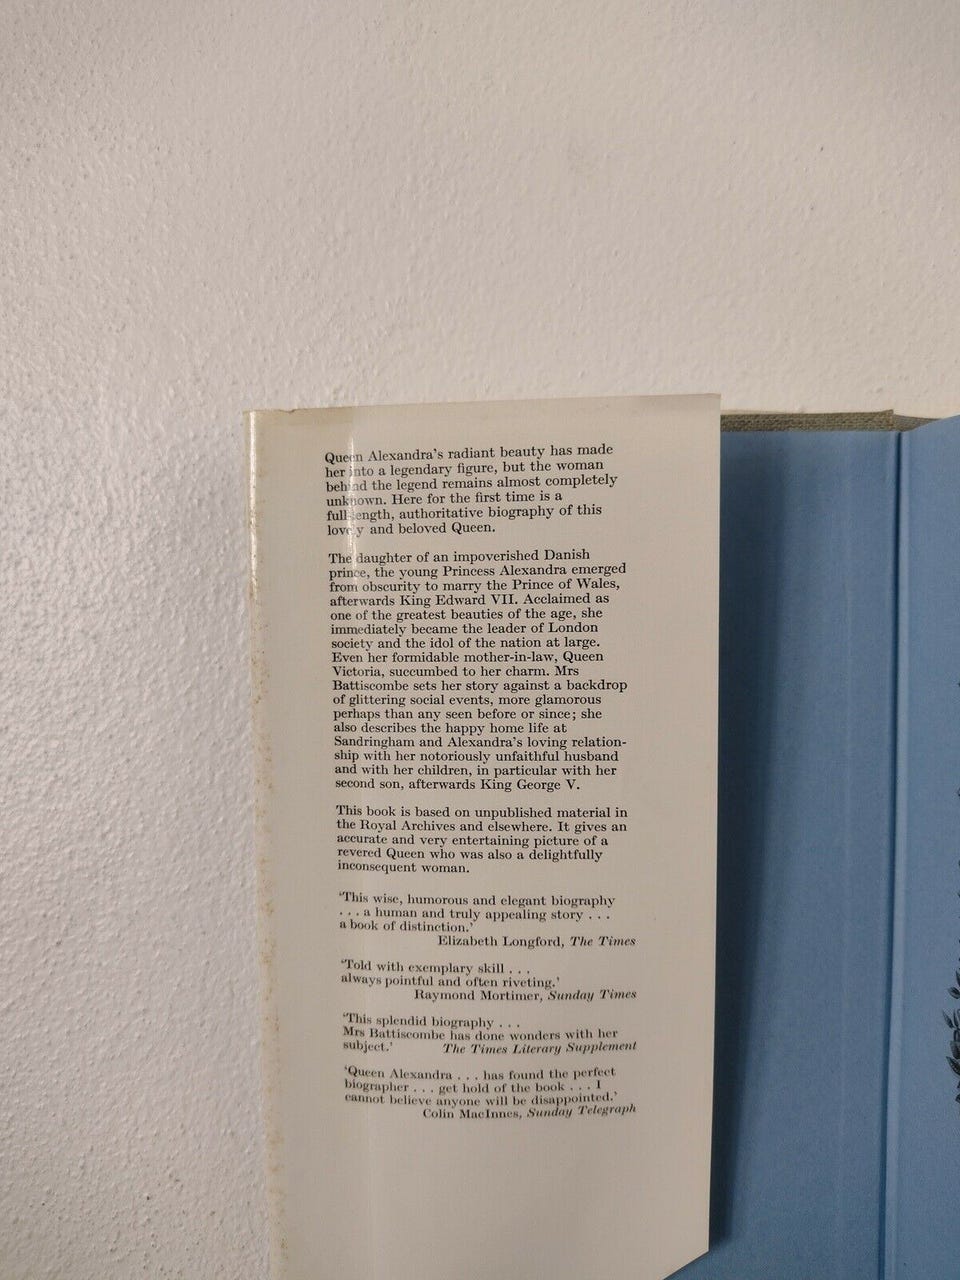 Queen Alexandra's radiant beauty has made
her into a legendary figure, but the woman
behind the legend remains almost completely
unknown. Here for the first time is a
full-length, authoritative biography of this
lovely and beloved Queen.
The daughter of an impoverished Danish
prince, the young Princess Alexandra emerged
from obscurity to marry the Prince of Wales,
afterwards King Edward VII. Acclaimed as
one of the greatest beauties of the age, she
immediately became the leader of London
society and the idol of the nation at large.
Even her formidable mother-in-law, Queen
Victoria, succumbed to her charm. Mrs
Battiscombe sets her story against a backdrop
of glittering social events, more glamorous
perhaps than any seen before or since; she
also describes the happy home life at
Sandringham and Alexandra's loving relation-
ship with her notoriously unfaithful husband
and with her children, in particular with her
second son, afterwards King George V.
This book is based on unpublished material in
the Royal Archives and elsewhere. It gives an
accurate and very entertaining picture of a
revered Queen who was also a delightfully
inconsequent woman.
'This wise, humorous and elegant biography
. . . a human and truly appealing story . . .
a book of distinction.'
Elizabeth Longford, The Times
'Told with exemplary skill . . .
always pointful and often riveting.'
Raymond Mortimer, Sunday Times
'This splendid biography . . .
Mrs Battiscombe has done wonders with her
subject.' The Times Literary Supplement
'Queen Alexandra . . . has found the perfect
biographer . . . get hold of the book . . . I
cannot believe anyone will be disappointed.'
Colin MacInnes, Sunday Telegraph